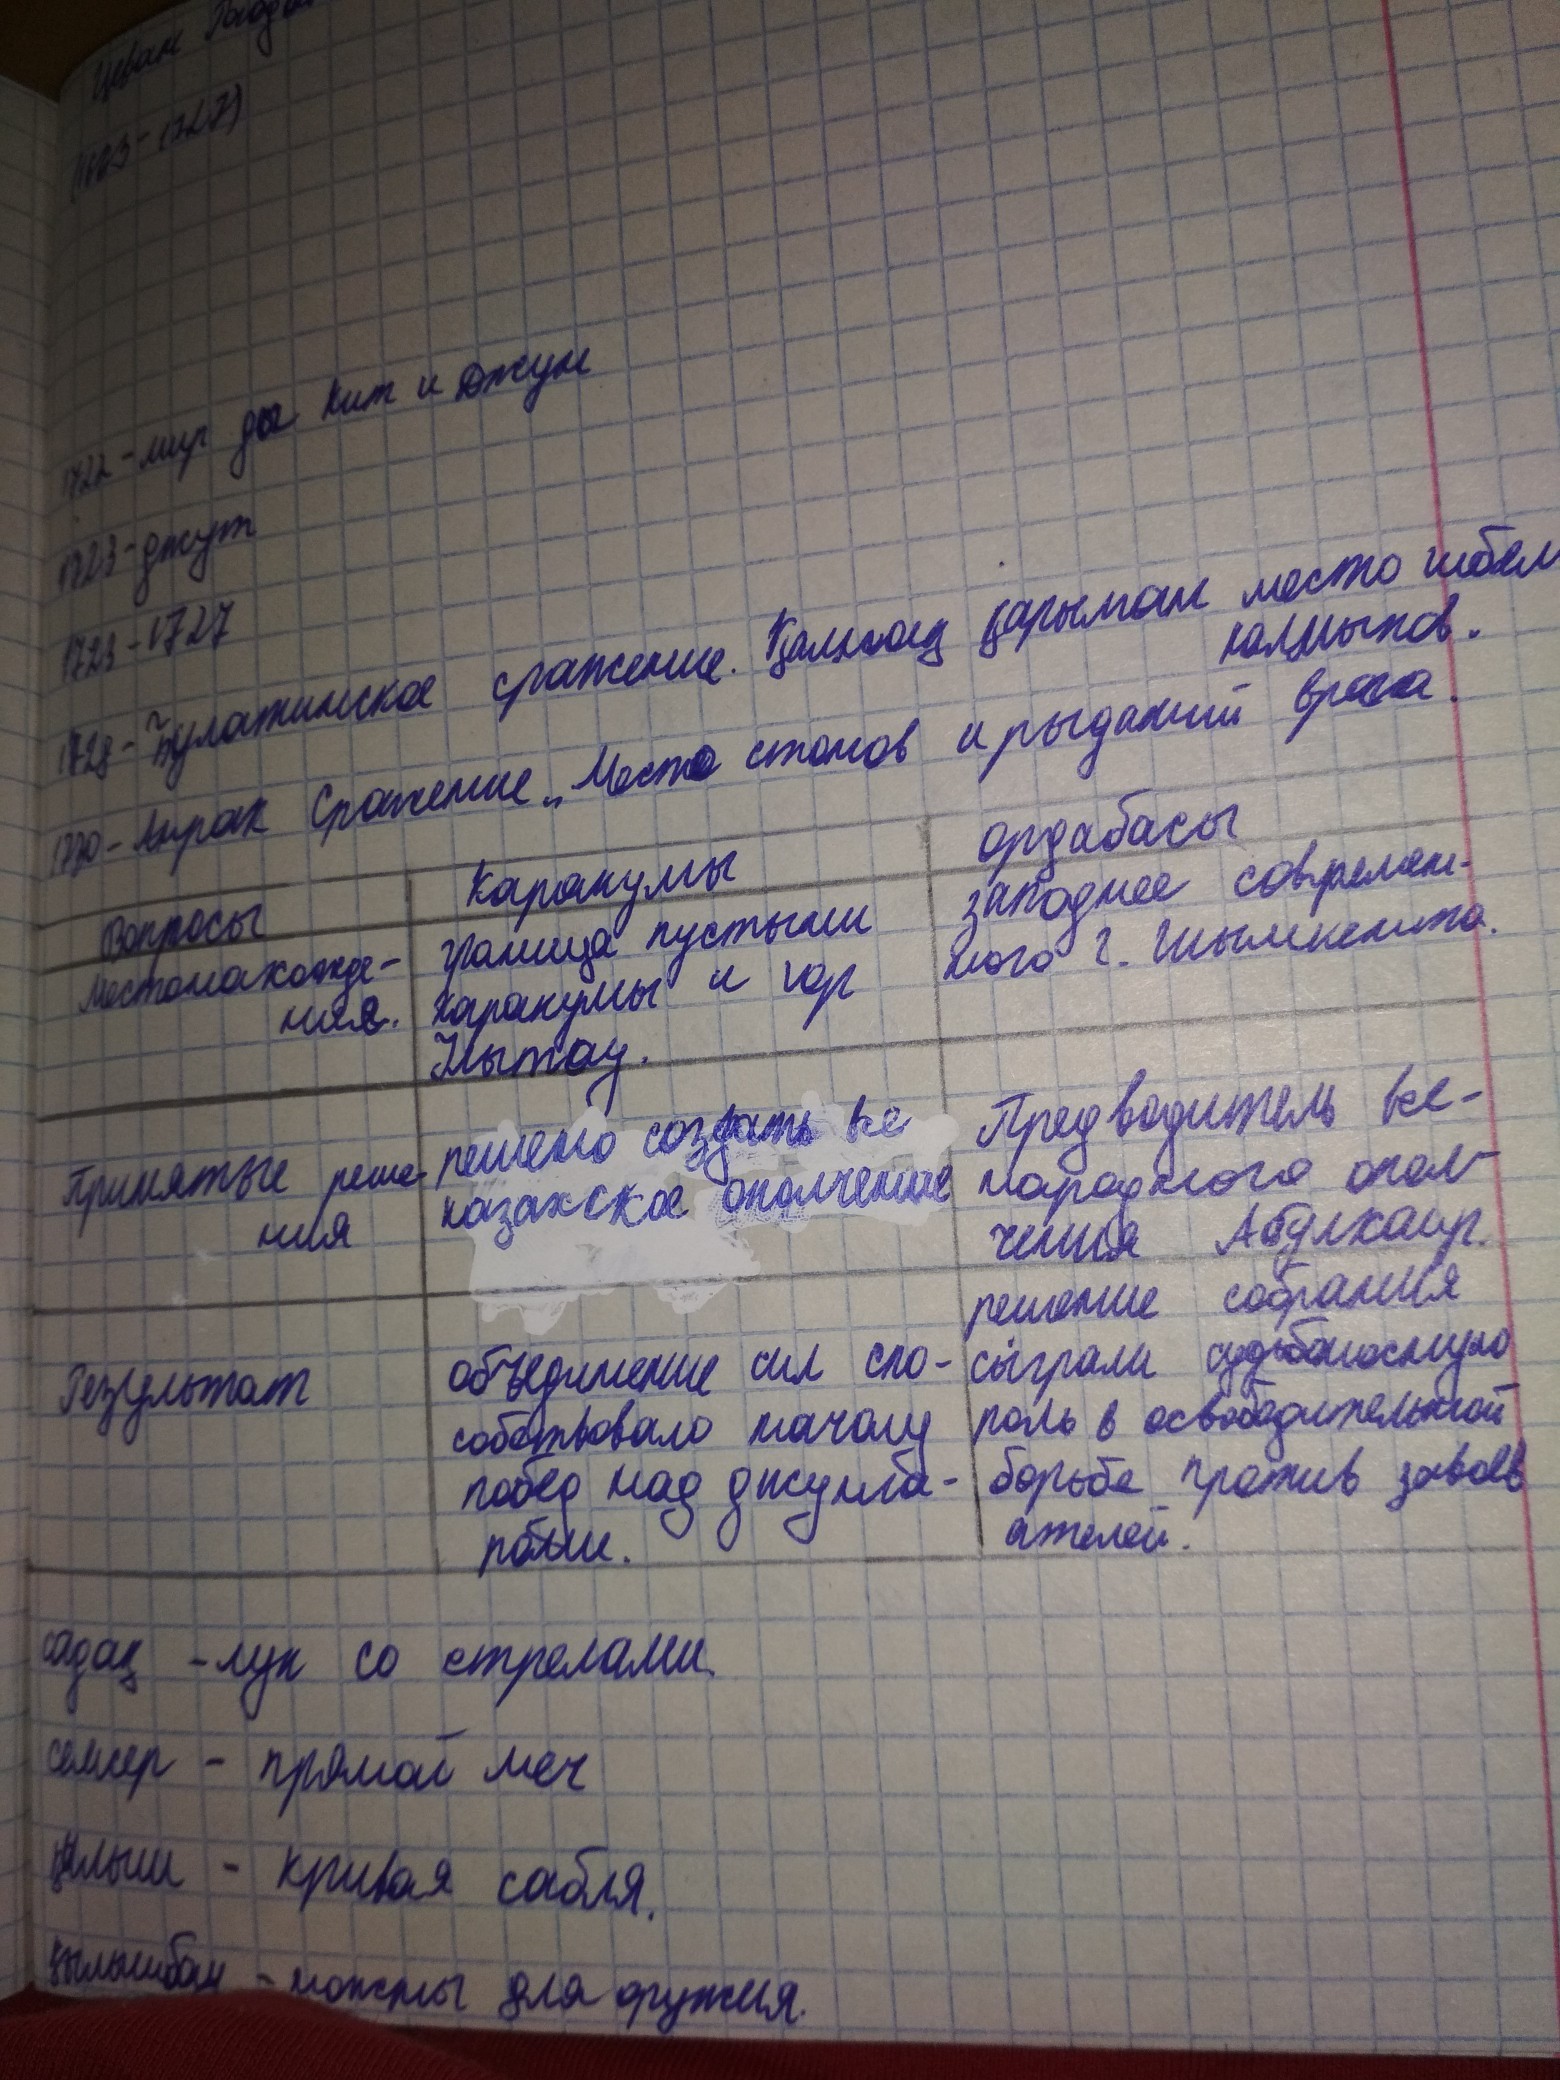 Цеван
1722 - мир ды Кит и Джун
1723 - джут
1723 - 1727
1728 - Булатинское сражение. Қалмақ қарылған место гибел
калмыков.
1730 - Анрак Сражение „Место стонов и рыданий врага.
Вопросы
Каракумы
ордабасы
Местонахожде-
ния.
граница пустыни
Каракумы и гор
Улытау.
западнее современ-
ного г. Шымкента.
Принятые реше-
ния
решено создать все
казахское ополчение
Предводитель все-
народного опол-
чения Абулхаир.
Результат
объединение сил спо-
собствовало началу
побед над джунга-
рами.
решение собрания
сыграли судьбоносную
роль в освободительной
борьбе против завоев
ателей.
садақ - лук со стрелами.
семсер - прямой меч
қылыш - кривая сабля.
қылышбау - ножны для оружия.